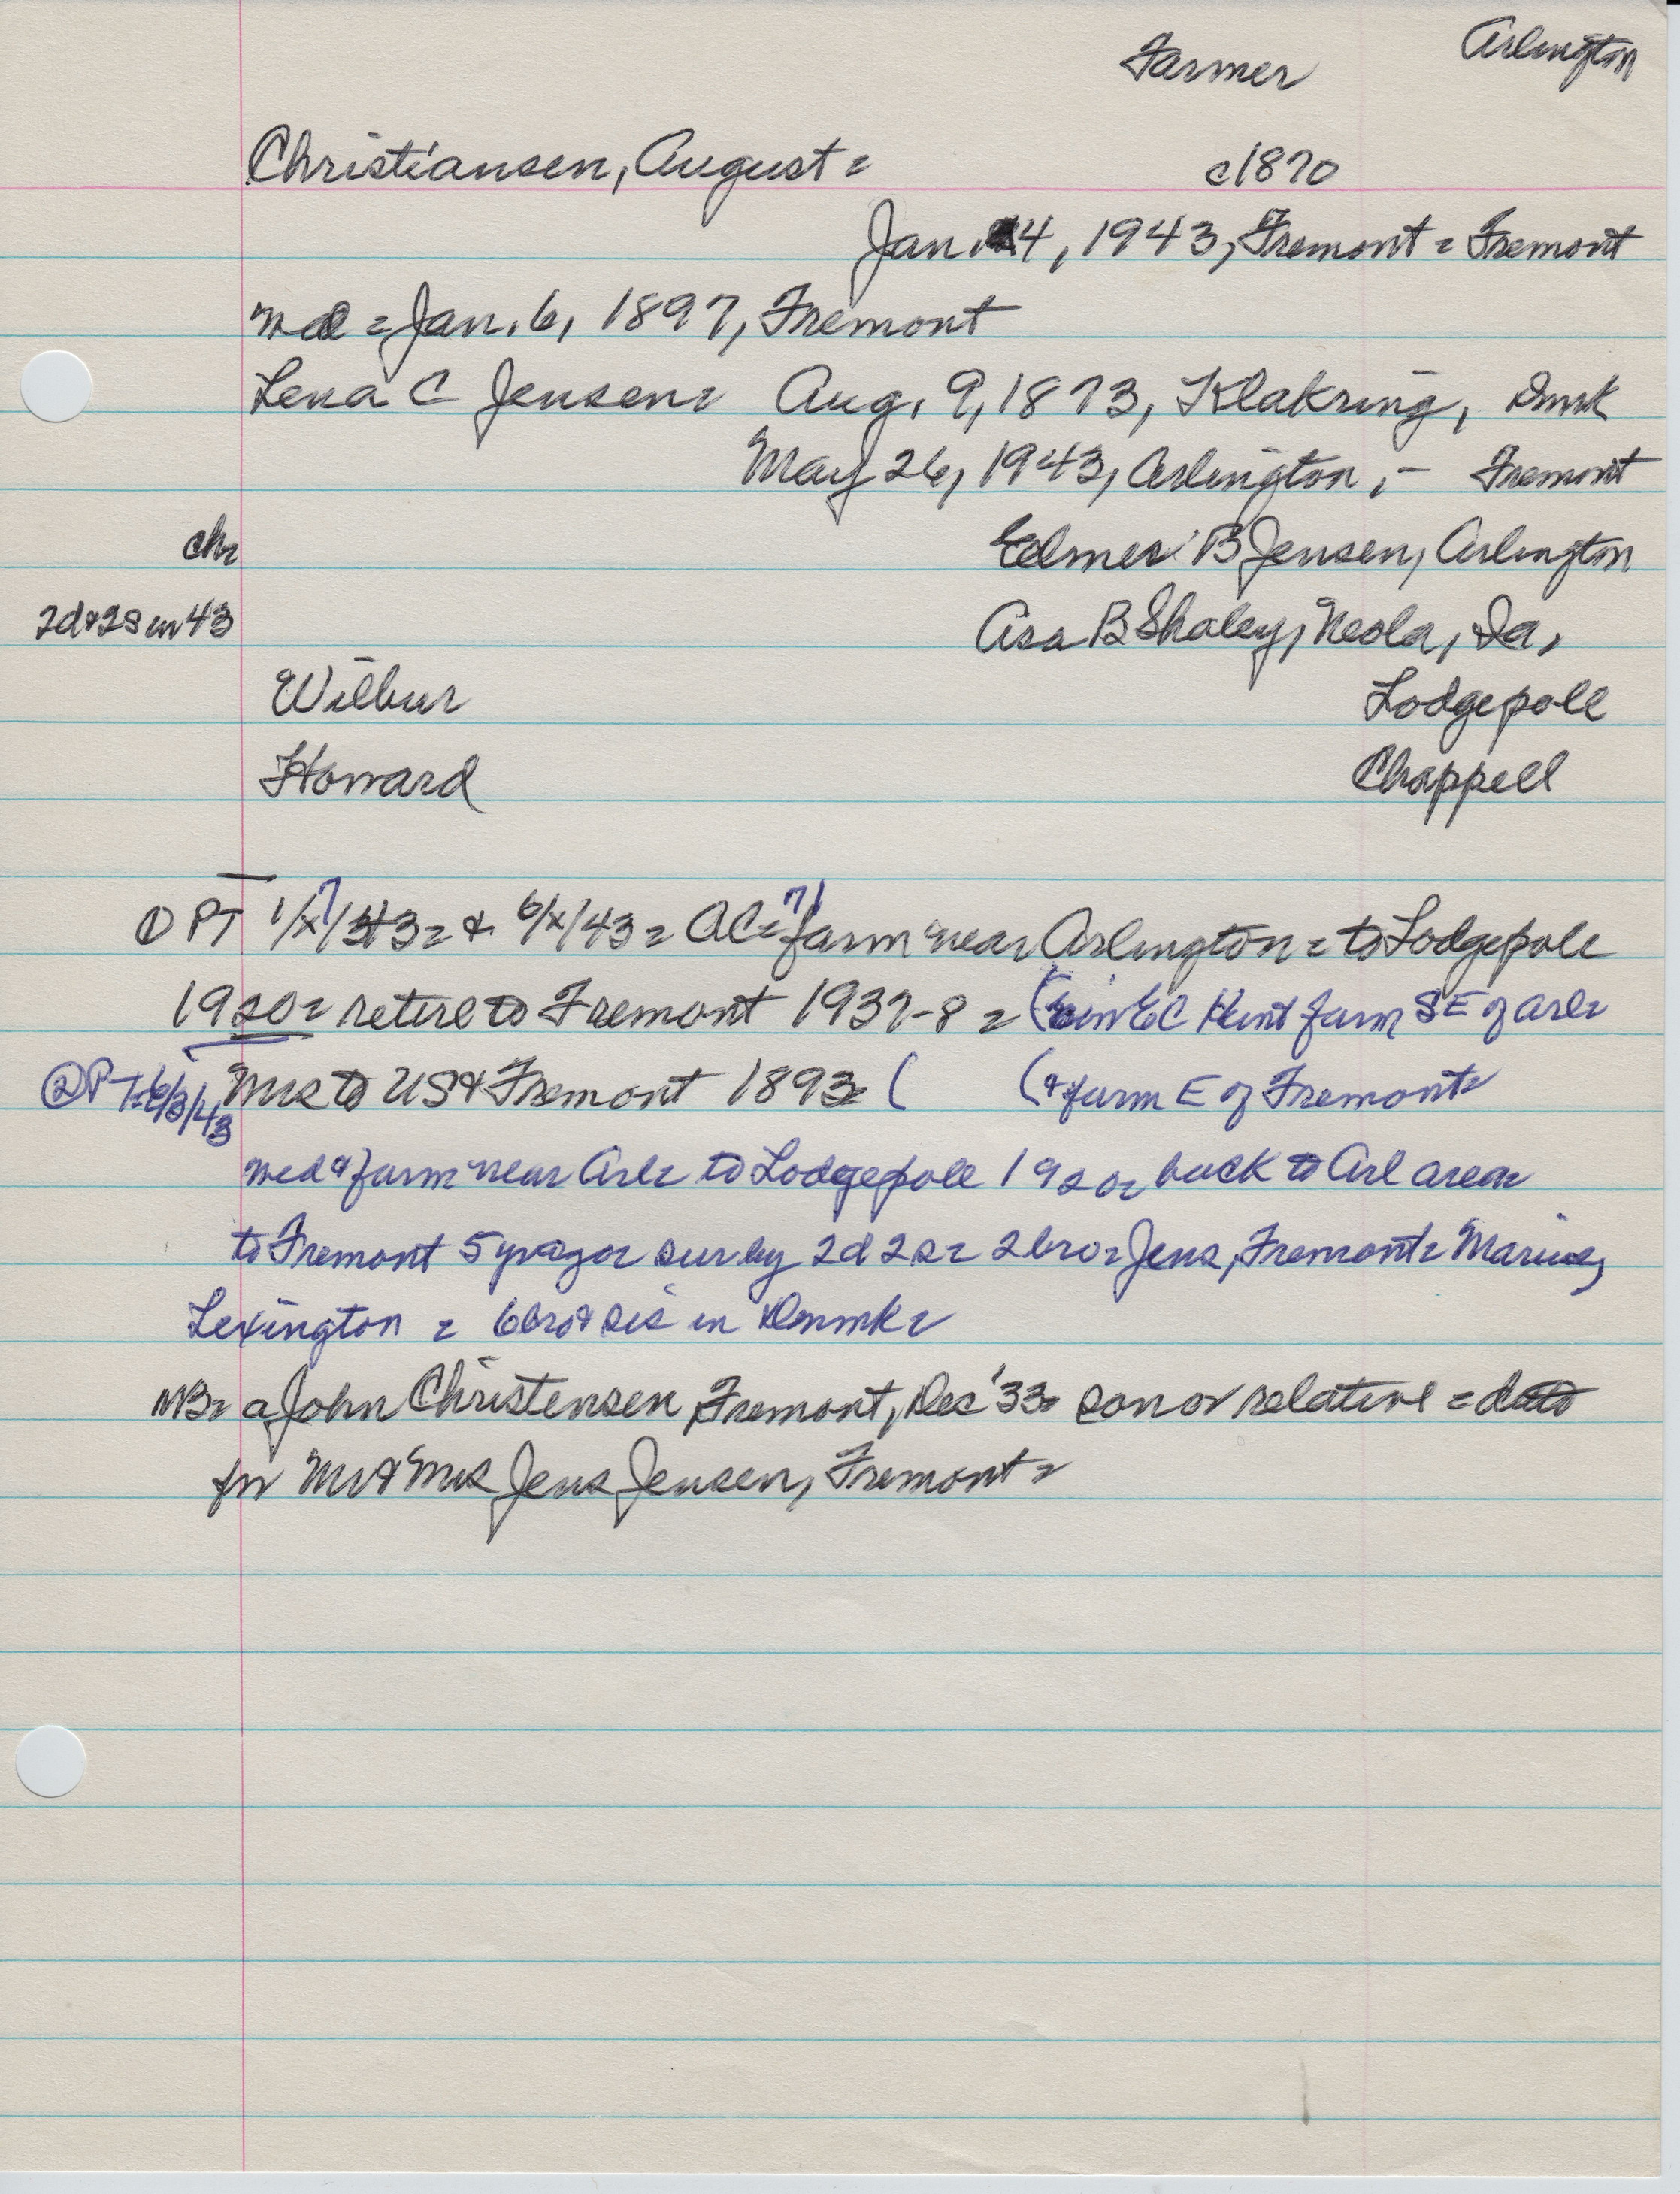 Farmer Arlington
Christiansen, August = c1870
Jan. 4, 1943, Fremont = Fremont
md = Jan. 6, 1897, Fremont
Lena C Jensen = Aug. 9, 1873, Klakring, Dmk
May 26, 1943, Arlington, - Fremont
ch= Elmer B Jensen, Arlington
2d&2s in 43 Asa B Shaley, Neola, Ia,
Wilbur Lodgepole
Howard Chappell
① PT 1/7/43 = & 6/x/43 = AC = 71 farm near Arlington = to Lodgepole
1920 = retire to Fremont 1937-8 = ( in EC Hunt farm SE of Arl =
② PT = 6/3/43 Mrs to US & Fremont 1893 = ( (& farm E of Fremont =
wed & farm near Arl = to Lodgepole 1920 = back to Arl area =
to Fremont 5 yr ago = sur by 2d 2s = 2 bro = Jens, Fremont = Marius,
Lexington = 6 bro & sis in Dnmk =
NB = a John Christensen, Fremont, Dec '33 = son or relative =
for Mr & Mrs Jens Jensen, Fremont =